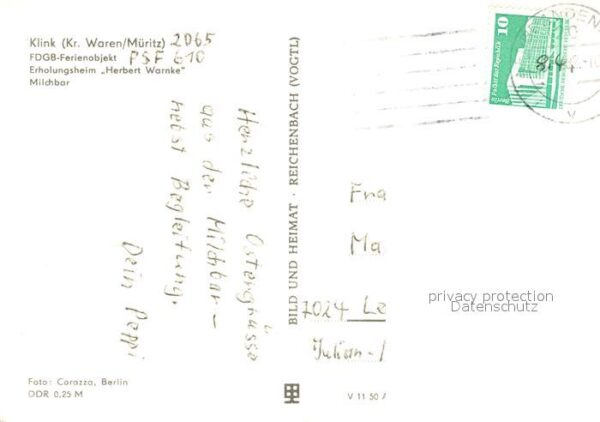 Klink (Kr. Waren/Müritz) 2065
FDGB-Ferienobjekt PSF 610
Erholungsheim „Herbert Warnke"
Milchbar
Herzliche Ostergrüsse
aus der Milchbar –
nebst Begleitung.
Dein Peppi
BILD UND HEIMAT · REICHENBACH (VOGTL)
10
Palast der Republik
Fra
Ma
7024 Le
Julian-
privacy protection
Datenschutz
Foto: Corazza, Berlin
DDR 0,25 M
V 11 50